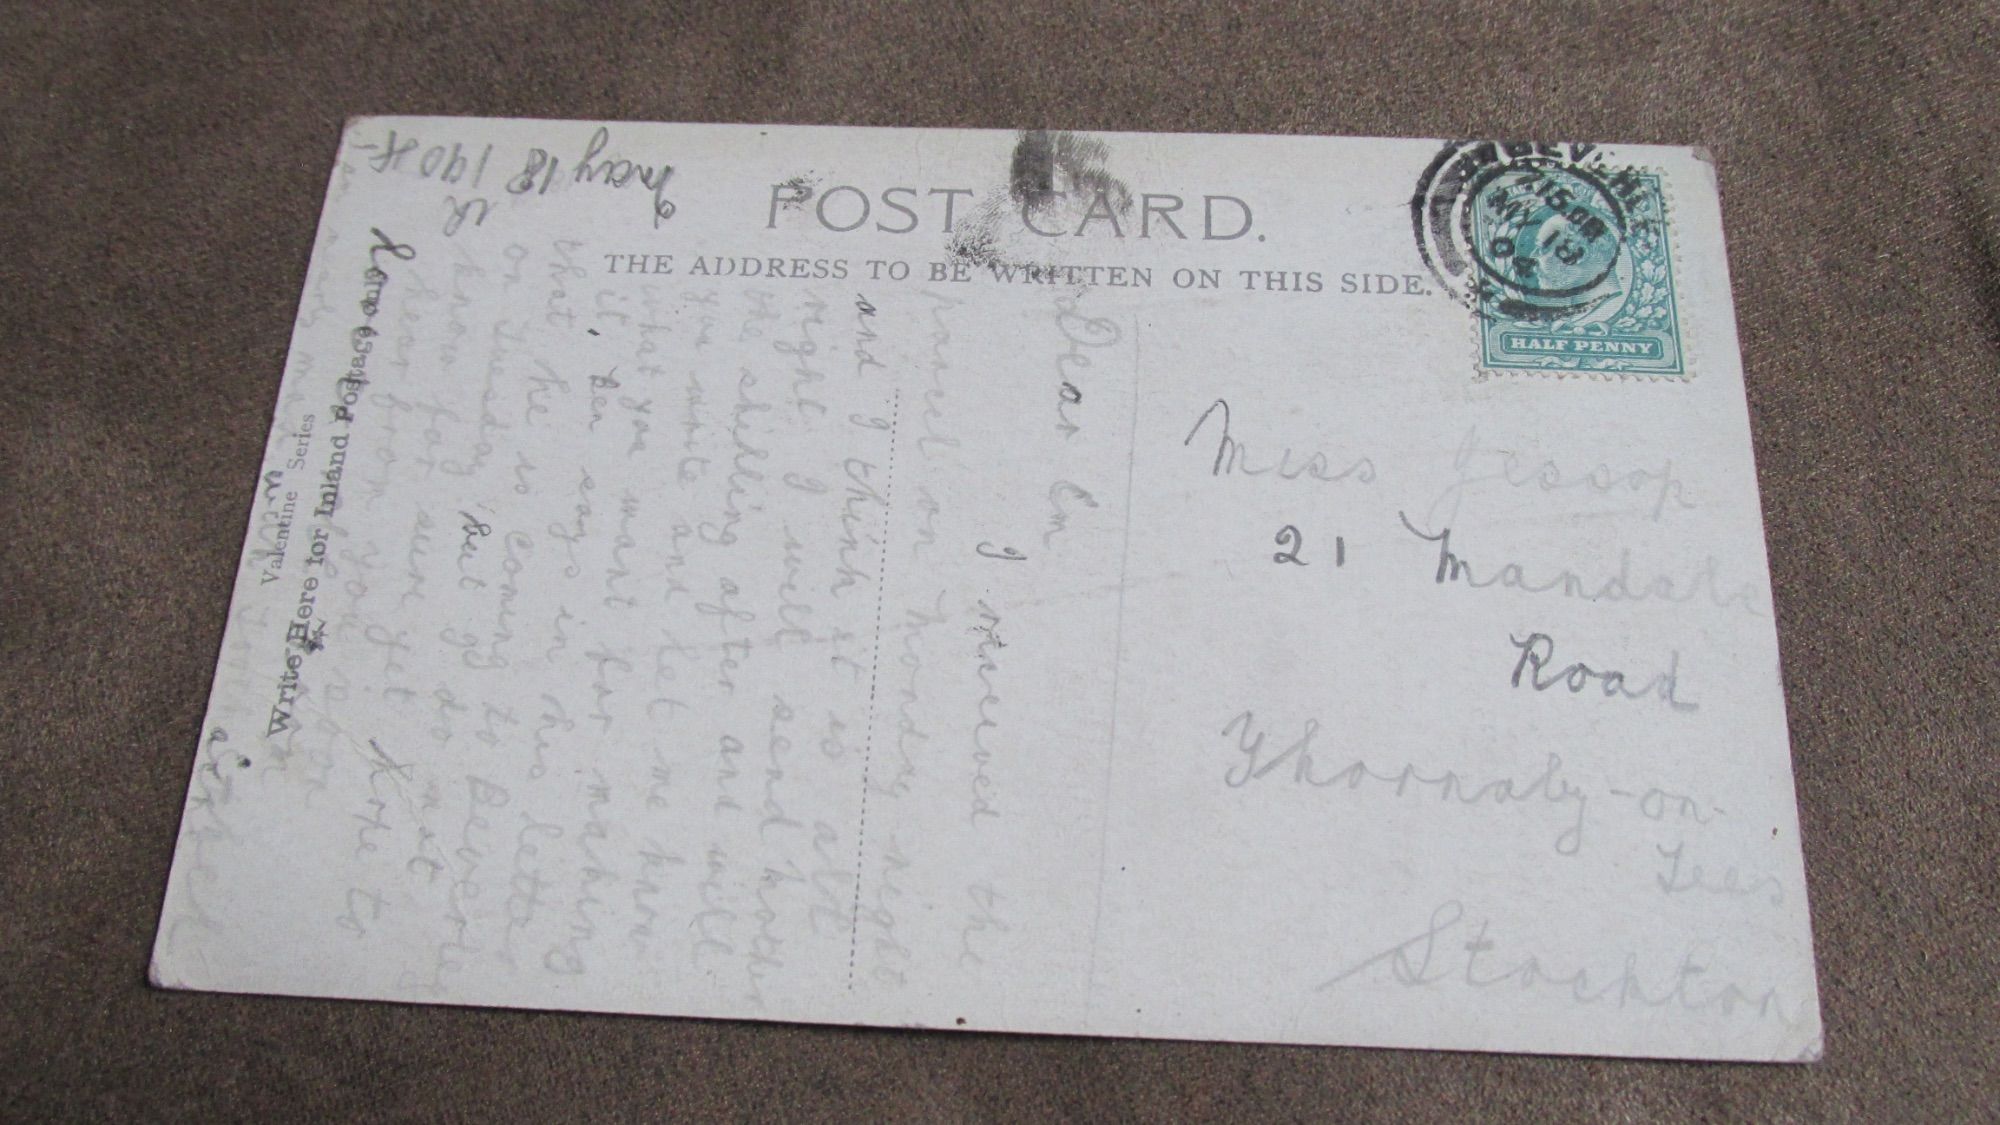 POST CARD.
THE ADDRESS TO BE WRITTEN ON THIS SIDE.
MY 18
04
HALF PENNY
Miss Jessop
21 Mandale
Road
Thornaby-on-
Tees
Stockton
May 18 1904
Dear Em
I received the
parcel on Monday night
and I think it is all
right I will send Mother
the shilling after and will
you write and let me know
what you want for making
it, Ben says in his letter
that he is coming to Beverley
on Tuesday but I do not
know for sure yet Hope to
hear from you soon
Write Here for Inland Postage only.
Valentine Series